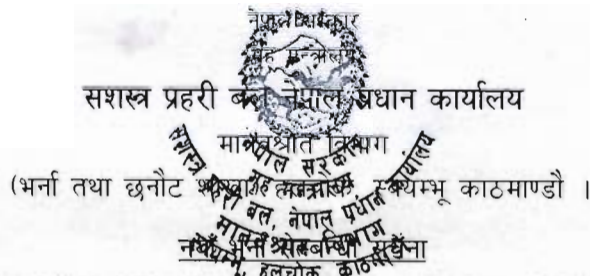 नेपाल सरकार
गृह मन्त्रालय
सशस्त्र प्रहरी बल नेपाल प्रधान कार्यालय
मानवश्रोत विभाग
(भर्ना तथा छनौट शाखा) हलचोक, स्वयम्भू काठमाण्डौ ।
नयाँ भर्ना सम्बन्धी सूचना
नेपाल सरकार
गृह मन्त्रालय
सशस्त्र प्रहरी बल, नेपाल प्रधान कार्यालय
मानवश्रोत विभाग
हलचोक काठमाडौं